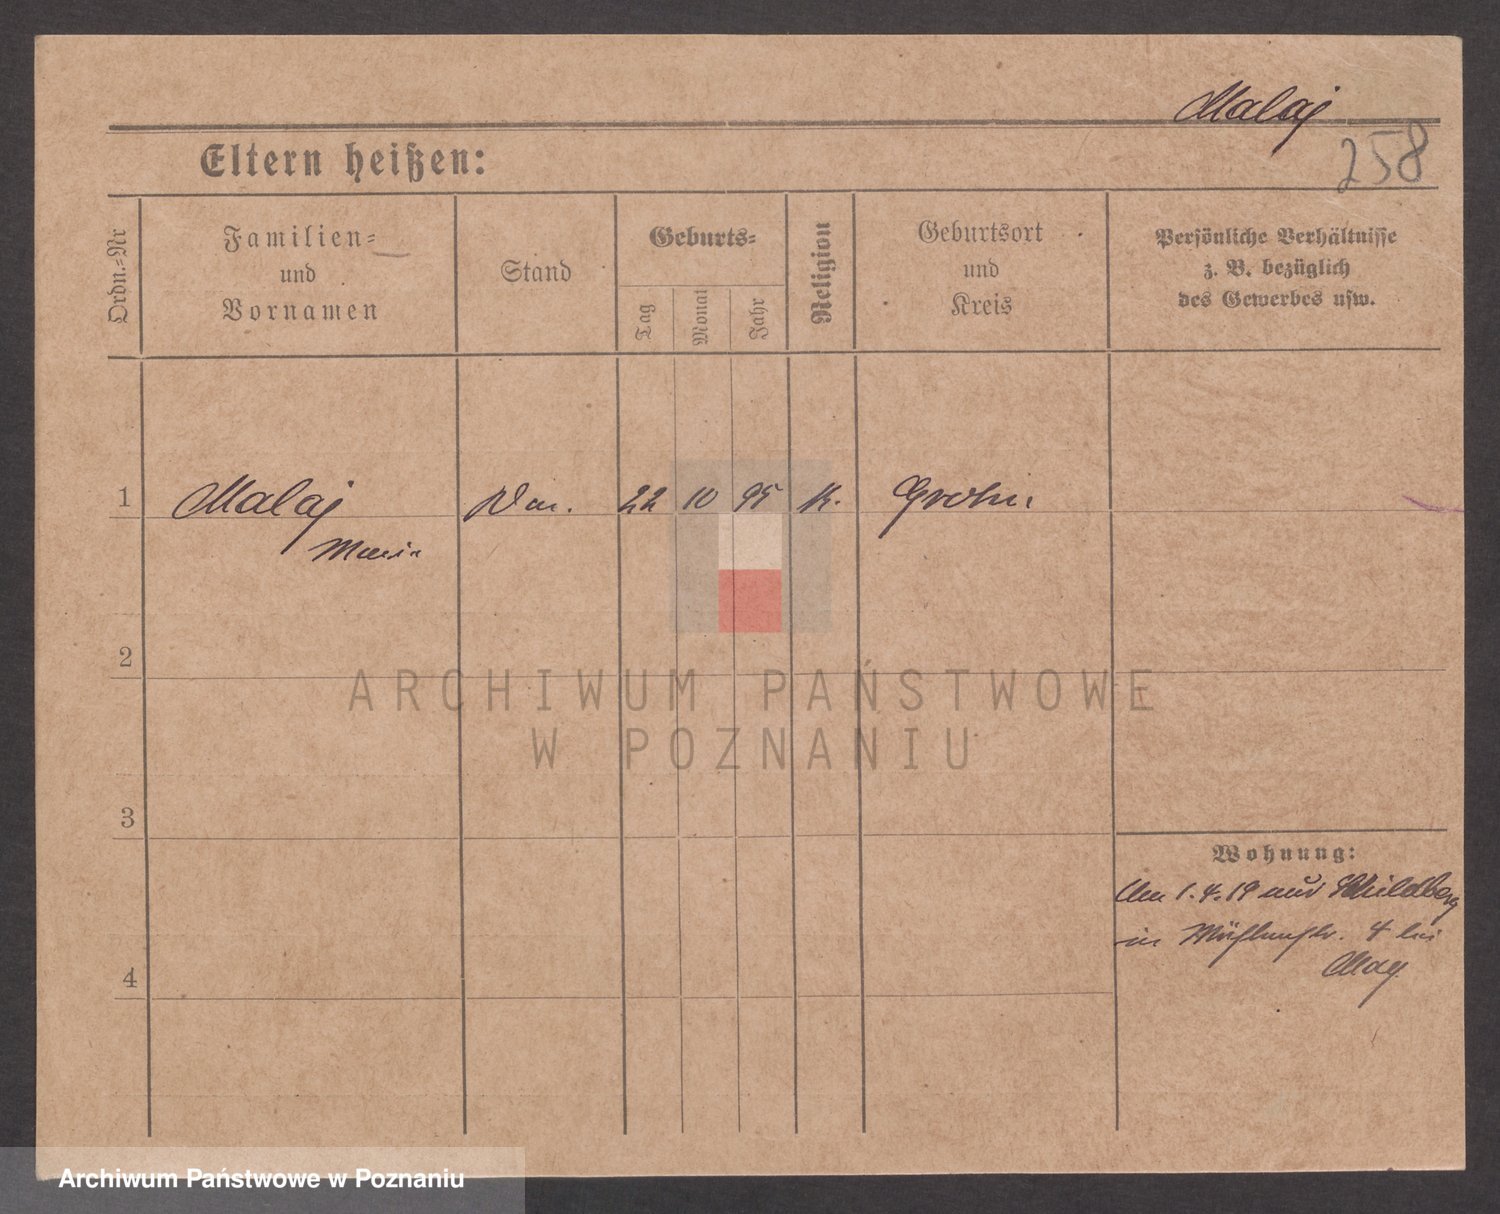 Malaj
258
Eltern heißen:
Ordn.-Nr
Familien-
und
Vornamen
Stand
Geburts-
Tag
Monat
Jahr
Religion
Geburtsort
und
Kreis
Persönliche Verhältnisse
z. B. bezüglich
des Gewerbes usw.
1
Malaj
Maria
22
10
95
K.
2
3
4
Wohnung:
Am 1.4.19 aus Schildberg
in 4 bei
ARCHIWUM PAŃSTWOWE
W POZNANIU
Archiwum Państwowe w Poznaniu